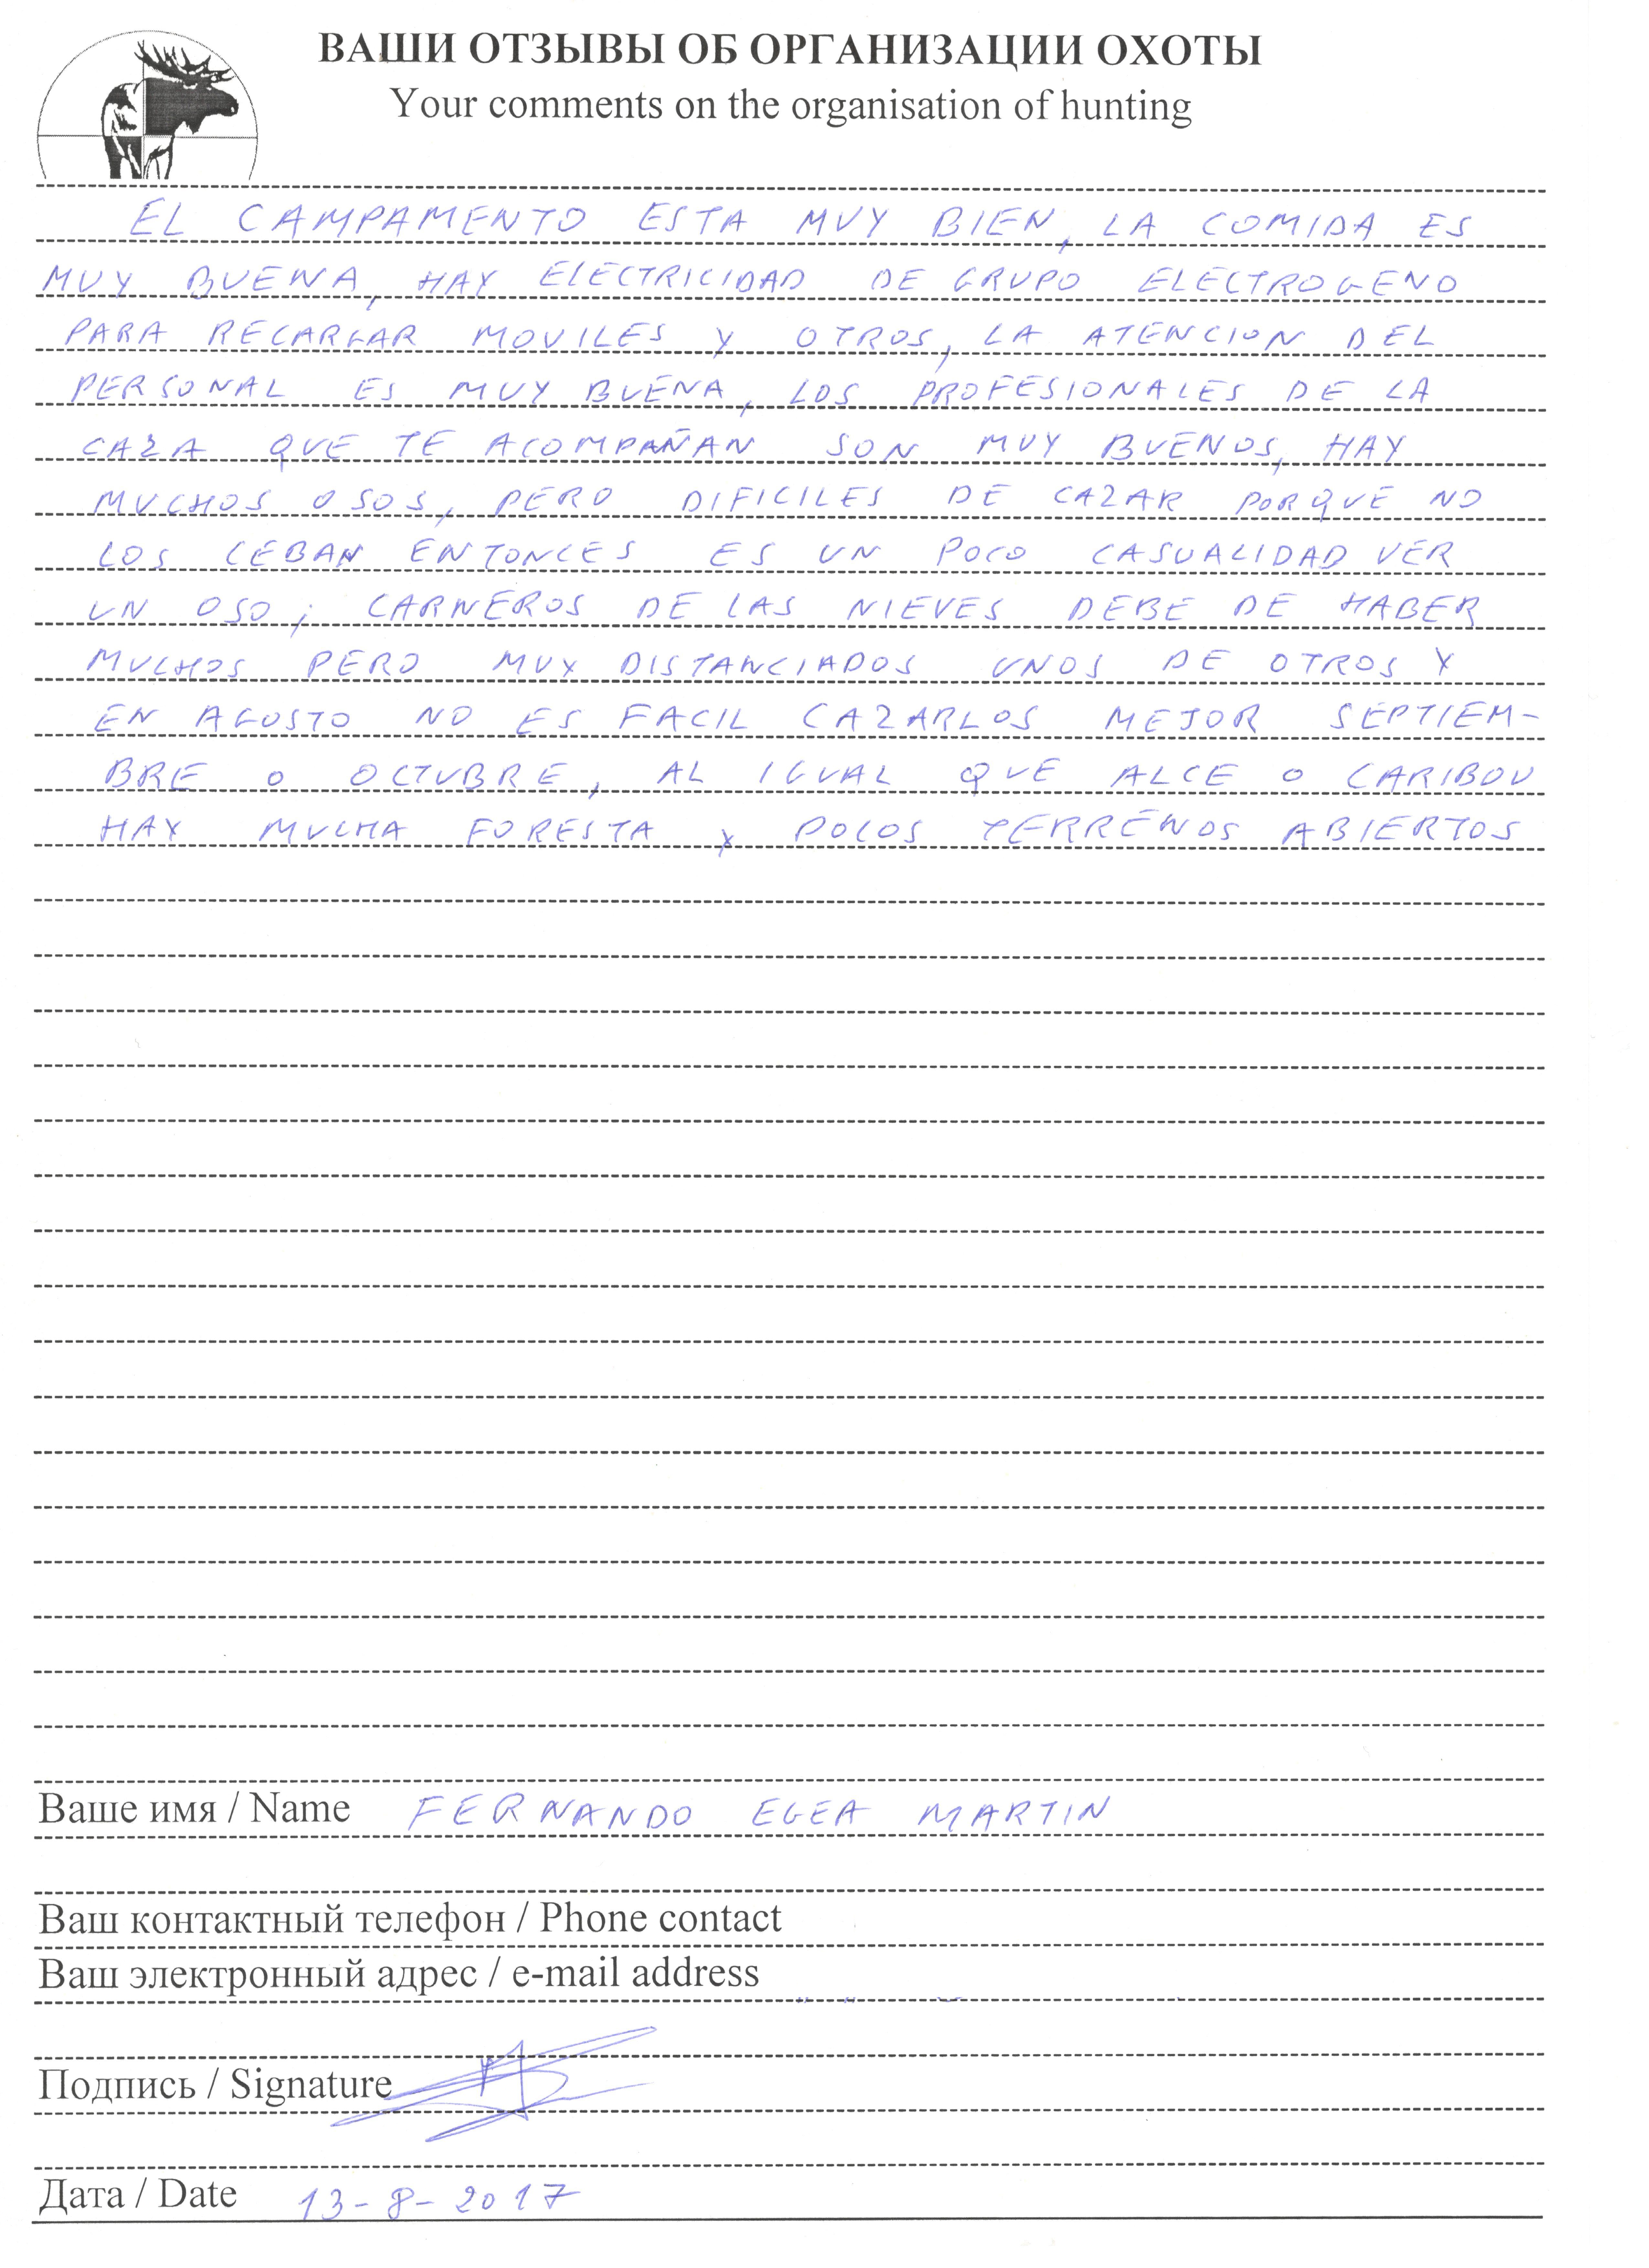 ВАШИ ОТЗЫВЫ ОБ ОРГАНИЗАЦИИ ОХОТЫ
Your comments on the organisation of hunting
EL CAMPAMENTO ESTA MUY BIEN, LA COMIDA ES
MUY BUENA, HAY ELECTRICIDAD DE GRUPO ELECTROGENO
PARA RECARGAR MOVILES Y OTROS, LA ATENCION DEL
PERSONAL ES MUY BUENA, LOS PROFESIONALES DE LA
CAZA QUE TE ACOMPAÑAN SON MUY BUENOS, HAY
MUCHOS OSOS, PERO DIFICILES DE CAZAR PORQUE NO
LOS CEBAN ENTONCES ES UN POCO CASUALIDAD VER
UN OSO; CARNEROS DE LAS NIEVES DEBE DE HABER
MUCHOS PERO MUY DISTANCIADOS UNOS DE OTROS Y
EN AGOSTO NO ES FACIL CAZARLOS MEJOR SEPTIEM-
BRE O OCTUBRE, AL IGUAL QUE ALCE O CARIBOU
HAY MUCHA FORESTA Y POCOS TERRENOS ABIERTOS
Ваше имя / Name FERNANDO EGEA MARTIN
Ваш контактный телефон / Phone contact
Ваш электронный адрес / e-mail address
Подпись / Signature
Дата / Date 13-8-2017